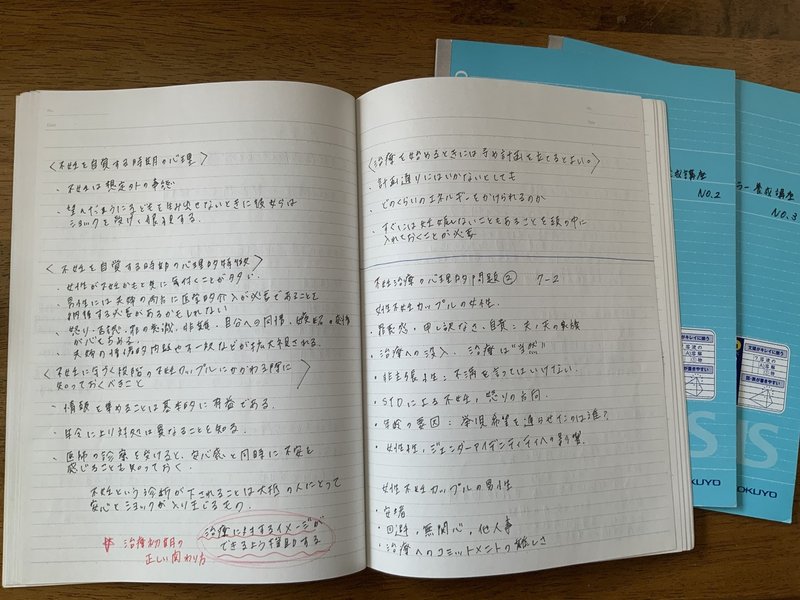 〈不妊を自覚する時期の心理〉
・不妊は想定外の事態
・望んだようにこどもを生み出せないときに彼女らは
ショックを受け、狼狽する。
〈不妊を自覚する時期の心理的特徴〉
・女性が不妊かもと先に気付くことが多い
・男性には夫婦の両方に医学的介入が必要であることを
納得する必要があるかもしれない
・怒り・自分への同情
がともなう。
・夫婦の情緒的内観や不一致などが拡大
〈不妊に気づく段階の不妊カップルにかかわる際に
知っておくべきこと〉
・情報を集めることは基本的に有益である。
・年令により対処は異なることを知る。
・医師の診察を受けると、安心感と同時に不安を
感じることも知っておく。
不妊という診断が下されることは大抵の人にとって
安心とショックが入りまじるもの。
治療初期の
正しい関わり方
治療に対するイメージが
できるよう援助する
〈治療を始めるときには予め計画を立てるとよい。〉
・計画通りにはいかないとしても
・どのくらいのエネルギーをかけられるのか
・すぐには妊娠しないこともあることを頭の中に
入れておくことが必要
不妊治療の心理的問題② 7-2
女性不妊カップルの女性
・罪悪感、申し訳なさ、自責:夫、夫の家族
・治療への深入、治療は"当然"
・非主張性:不満を言ってはいけない。
・STDによる不妊、怒りの方向
・年齢の要因:挙児希望を遅らせたのは誰?
・女性性、ジェンダーアイデンティティへの影響
女性不妊カップルの男性
・安堵
・回避、無関心、他人事
・治療へのコミットメントの難しさ
成講座
NO.2
ラー養成講座
NO.3
KOKUYO
OKUYO